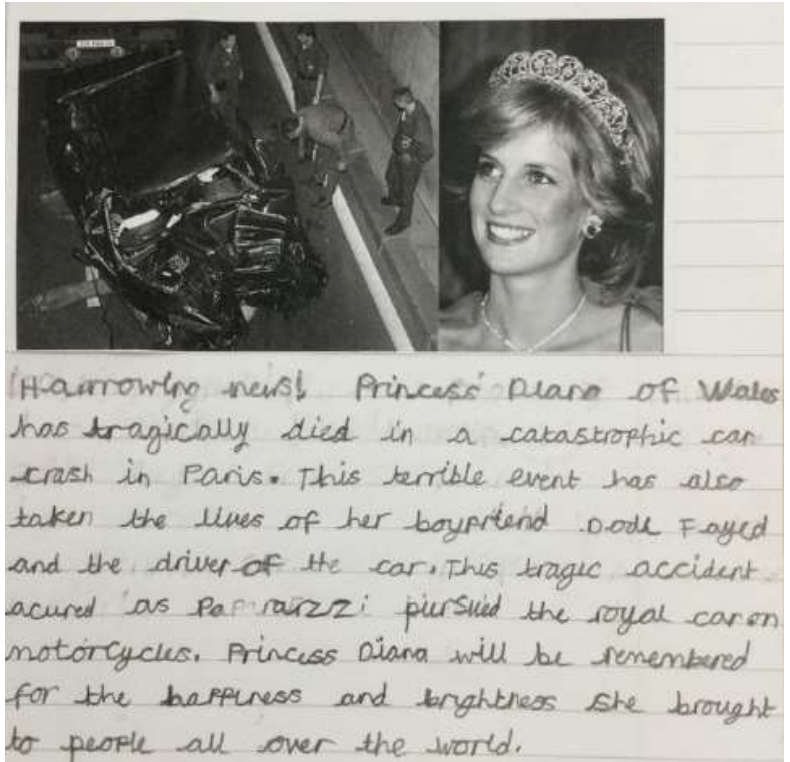 Harrowing news! Princess Diana of Wales
has tragically died in a catastrophic car
crash in Paris. This terrible event has also
taken the lives of her boyfriend Dodi Fayed
and the driver of the car. This tragic accident
acured as Paparazzi pursued the royal car on
motorcycles. Princess Diana will be remembered
for the happiness and brightness she brought
to people all over the world.